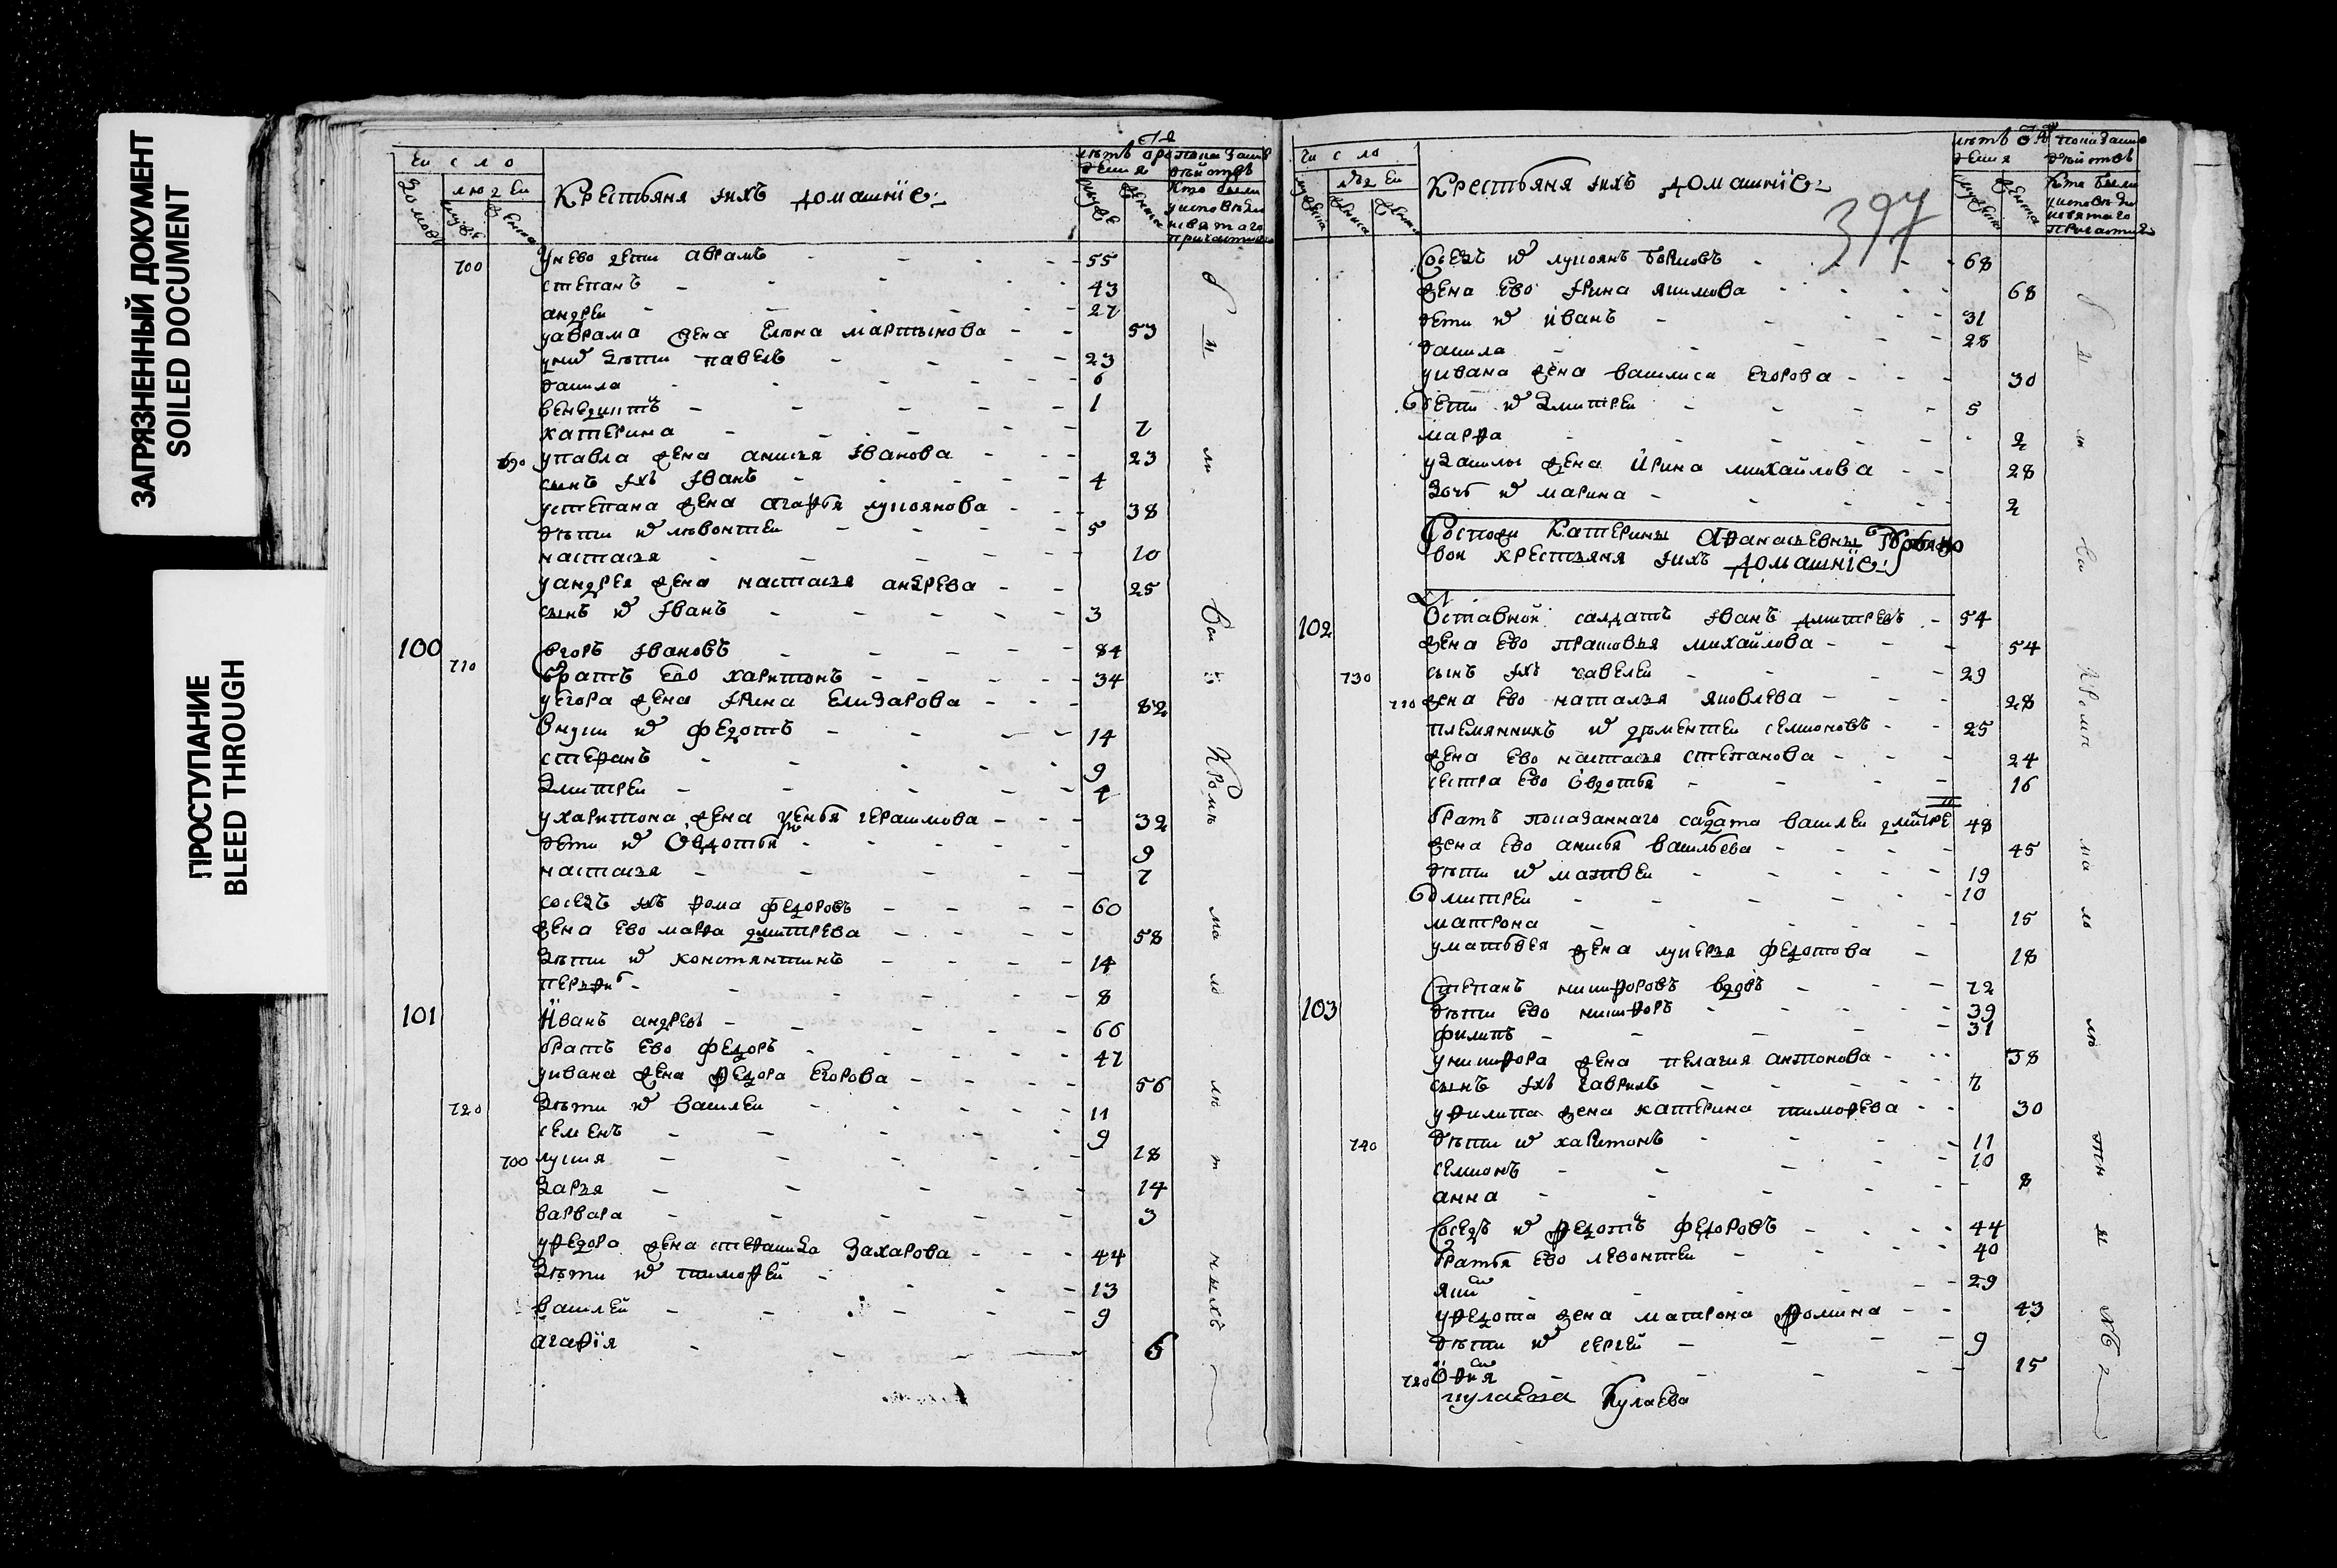 ЗАГРЯЗНЕННЫЙ ДОКУМЕНТ
SOILED DOCUMENT
ПРОСТУПАНИЕ
BLEED THROUGH
Чи с л о
домовъ
людеи
Крестьяня iихъ домашнiе:
лѣтъ
дѣиств
Кто были
у исповѣди
и святаго
причастия
700 У нево дети аврамъ 55
степанъ 43
андреи 27
у аврама жена Елена мартынова 53
у них дѣти павелъ 23
данила 6
венедиктъ 1
катерина 7
690 у павла жена анисья iванова 23
сынъ iхъ iванъ 4
у степана жена агафья лукоянова 38
дѣти их лѣвонтеи 5
настасья 10
у андрея жена настасья андрева 25
сынъ их iванъ 3
100 Егоръ iвановъ 84
710 братъ Ево харитонъ 34
у егора жена iрина Елизарова 82
Внуки их федотъ 14
стефанъ 9
дмитреи 4
у харитона жена герасимова 32
дети их Овдотья 9
настасья 7
соседъ iхъ фома федоровъ 60
жена ево марфа дмитрева 58
дѣти их константинъ 14
8
101 Иванъ андреевъ 66
братъ ево федоръ 47
у ивана жена федора Егорова 56
720 дѣти их василеи 11
семенъ 9
700 лукия 18
дарья 14
варвара 3
у федора жена стефанида Захарова 44
дѣти их тимофей 13
василей 9
агафiя 6
Чи с ло
людеи
Крестьяня iихъ домашнiе:
397
лѣтъ
дѣиств
Кто были
у исповѣди
и святаго
причастия
Соседъ их лукоянъ Борисовъ 68
жена Ево iрина якимова 68
дети их иванъ 31
данила 28
у ивана жена василиса Егорова 30
дети их дмитреи 5
марфа 2
у данилы жена Ирина михайлова 28
дочь их марина 2
Госпожи Катерины Афанасьевны
вои крестьяня iихъ домашнiе:
102 Отставной салдатъ iванъ дмитревъ 54
жена ево прасковья михайлова 54
730 сынъ iхъ савелеи 29
710 жена ево наталья яковлева 28
племянникъ их дѣментеи семионовъ 25
жена ево настасья степанова 24
сестра ево Овдотья 16
братъ показаннаго василеи дмитре 48
жена ево анисья васильева 45
дѣти их матвеи 19
дмитреи 10
матрона 15
у матвея жена лукерья федотова 18
103 Степанъ никифоровъ вдовъ 72
дѣти ево никифоръ 39
филипъ 31
у никифора жена пелагия антонова 38
сынъ iхъ гаврилъ 7
у филипа жена катерина тимофева 30
740 дѣти их харитонъ 11
семионъ 10
анна 8
соседъ их федотъ федоровъ 44
братья ево левонтеи 40
29
у федота жена матрона фомина 43
дѣти их сергеи 9
720 15
Кулаева